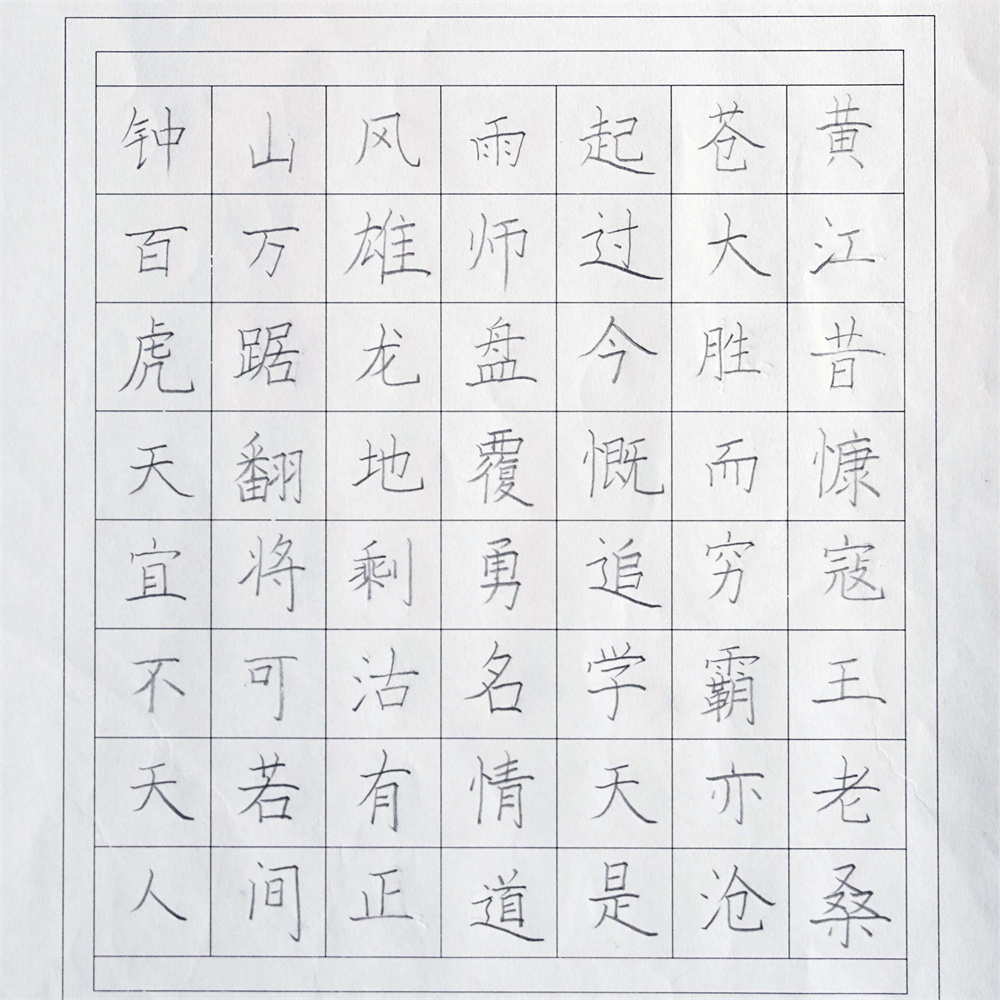 钟山风雨起苍黄
百万雄师过大江
虎踞龙盘今胜昔
天翻地覆慨而慷
宜将剩勇追穷寇
不可沽名学霸王
天若有情天亦老
人间正道是沧桑